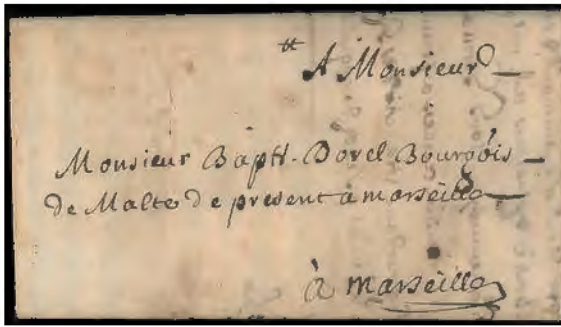 A Monsieur
Monsieur Baptt. Dorel Bourgois
de Malte de present a marseille
à marseille